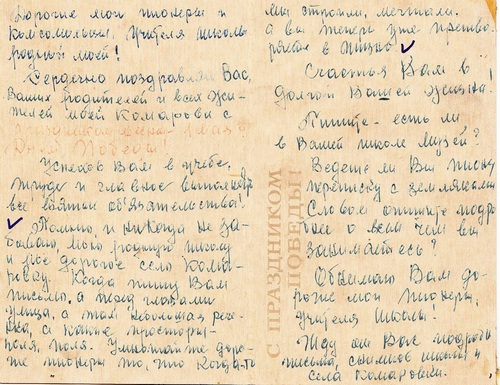 Дорогие мои пионеры и
комсомольцы, учителя школы
родной моей!
Сердечно поздравляю Вас,
Ваших родителей и всех жи-
телей моей Комаровки с
Праздником
Днем Победы!
Успехов Вам в учебе,
труде и главное выполнять
все взятые об'язательства!
Помню, и никогда не за-
бываю, мою родную школу
и мое дорогое село Кома-
ровку. Когда пишу Вам
письмо, а перед глазами
улица, а там небольшая реч-
ка, а какие просторы-
поля, поля. Умножайте доро-
гие пионеры то, что когда-то
мы строили, мечтали.
а вы теперь уже претво-
ряете в жизнь
Счастья Вам в
долгой Вашей жизни!
Пишите - есть ли
в Вашей школе музей?
Ведете ли Вы
переписку с земляками
Словом опишите подро-
бно о всем чем вы
занимаетесь?
Обнимаю Вас до-
рогие мои пионеры,
учителя школы!
Жду от Вас подроб
письма, снимков школы и
села Комаровки.
С ПРАЗДНИКОМ
ПОБЕДЫ!